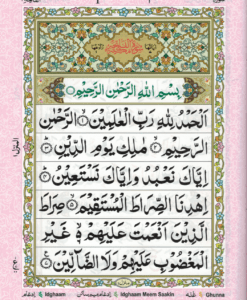 بِسْمِ اللهِ الرَّحْمٰنِ الرَّحِيْمِ
اَلْحَمْدُ لِلّٰهِ رَبِّ الْعٰلَمِيْنَ ۙ﴿۱﴾ الرَّحْمٰنِ
الرَّحِيْمِ ۙ﴿۲﴾ مٰلِكِ يَوْمِ الدِّيْنِ ؕ﴿۳﴾
اِيَّاكَ نَعْبُدُ وَاِيَّاكَ نَسْتَعِيْنُ ؕ﴿۴﴾
اِهْدِنَا الصِّرَاطَ الْمُسْتَقِيْمَ ۙ﴿۵﴾ صِرَاطَ
الَّذِيْنَ اَنْعَمْتَ عَلَيْهِمْ ۙ۬ غَيْرِ
الْمَغْضُوْبِ عَلَيْهِمْ وَلَا الضَّآلِّيْنَ
Idghaam
Idghaam Meem Saakin
Ghunna